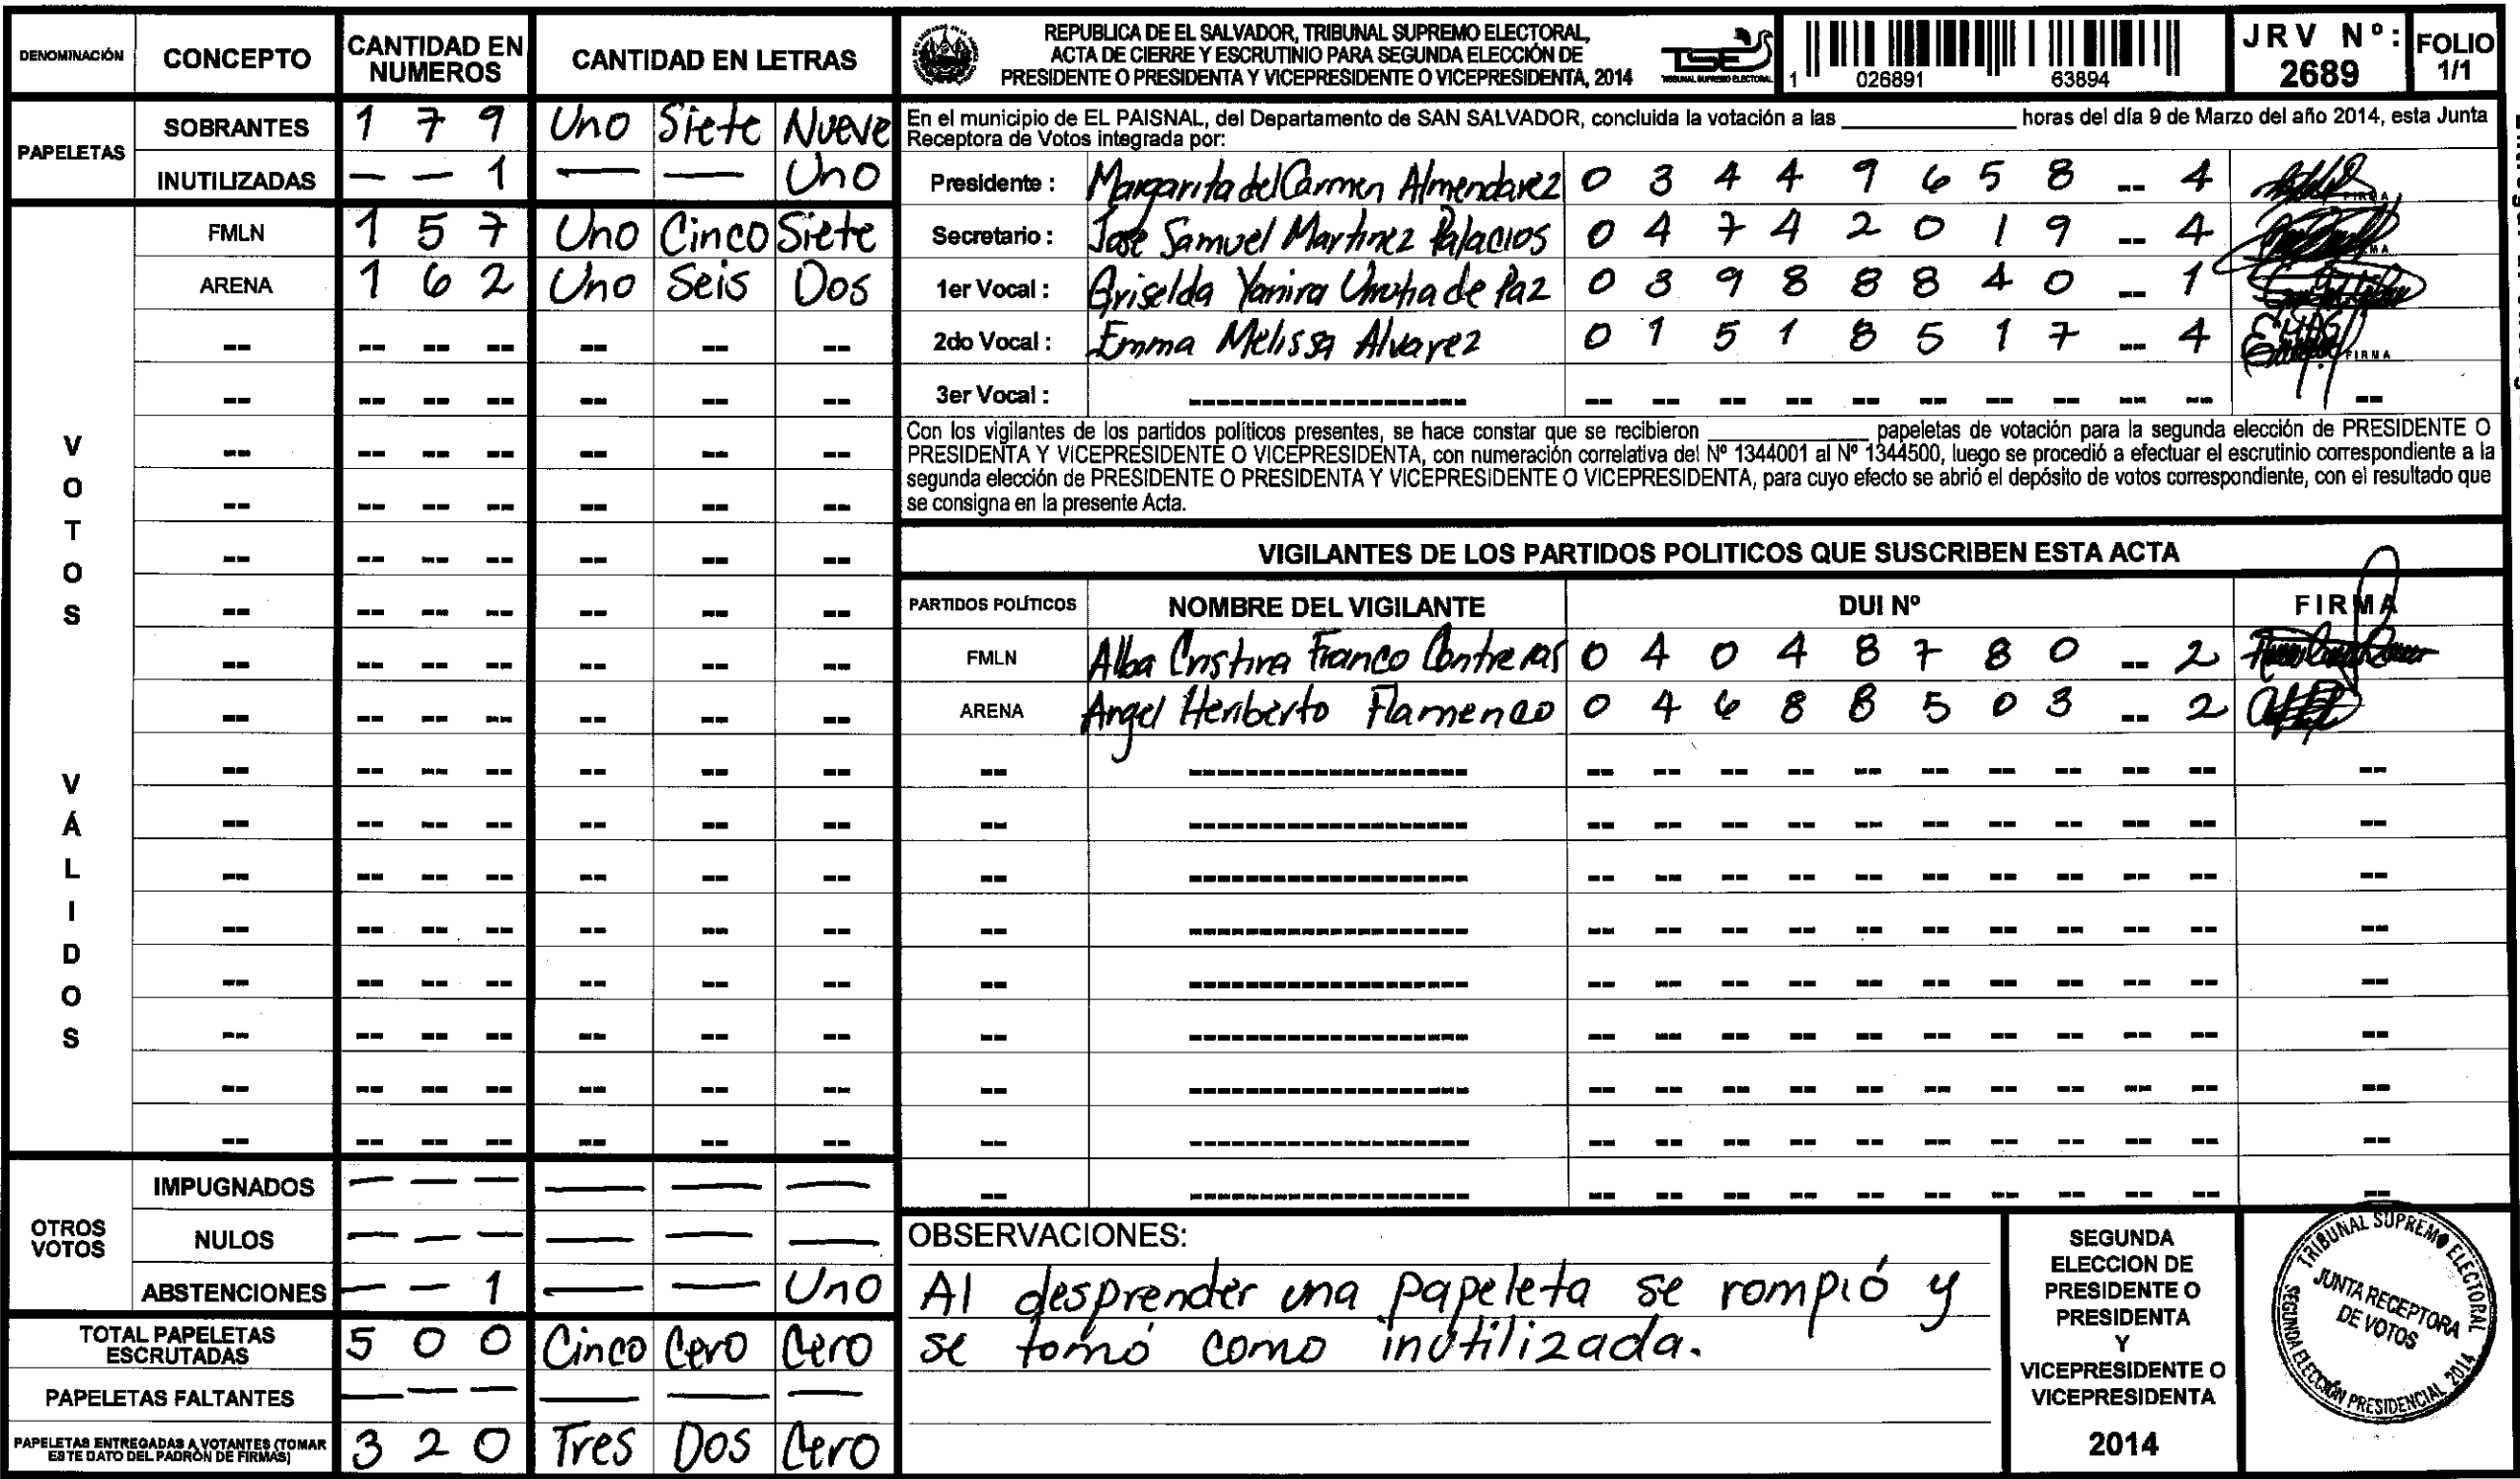 DENOMINACIÓN CONCEPTO CANTIDAD EN NUMEROS CANTIDAD EN LETRAS
PAPELETAS
SOBRANTES 1 7 9 Uno Siete Nueve
INUTILIZADAS — — 1 — — Uno
VOTOS VÁLIDOS
FMLN 1 5 7 Uno Cinco Siete
ARENA 1 6 2 Uno Seis Dos
OTROS VOTOS
IMPUGNADOS — — — — — —
NULOS — — — — — —
ABSTENCIONES — — 1 — — Uno
TOTAL PAPELETAS ESCRUTADAS 5 0 0 Cinco Cero Cero
PAPELETAS FALTANTES — — — — — —
PAPELETAS ENTREGADAS A VOTANTES (TOMAR ESTE DATO DEL PADRÓN DE FIRMAS) 3 2 0 Tres Dos Cero
REPUBLICA DE EL SALVADOR, TRIBUNAL SUPREMO ELECTORAL,
ACTA DE CIERRE Y ESCRUTINIO PARA SEGUNDA ELECCIÓN DE
PRESIDENTE O PRESIDENTA Y VICEPRESIDENTE O VICEPRESIDENTA, 2014
TSE
TRIBUNAL SUPREMO ELECTORAL
1 026891 63894
JRV Nº: 2689
FOLIO 1/1
En el municipio de EL PAISNAL, del Departamento de SAN SALVADOR, concluida la votación a las ____ horas del día 9 de Marzo del año 2014, esta Junta
Receptora de Votos integrada por:
Presidente : Margarita del Carmen Almendarez 0 3 4 4 9 6 5 8 -- 4
Secretario : José Samuel Martinez Palacios 0 4 7 4 2 0 1 9 -- 4
1er Vocal : Griselda Yanira Urrutia de Paz 0 3 9 8 8 8 4 0 -- 1
2do Vocal : Emma Melissa Alvarez 0 1 5 1 8 5 1 7 -- 4 FIRMA
3er Vocal :
Con los vigilantes de los partidos políticos presentes, se hace constar que se recibieron ____ papeletas de votación para la segunda elección de PRESIDENTE O
PRESIDENTA Y VICEPRESIDENTE O VICEPRESIDENTA, con numeración correlativa del Nº 1344001 al Nº 1344500, luego se procedió a efectuar el escrutinio correspondiente a la
segunda elección de PRESIDENTE O PRESIDENTA Y VICEPRESIDENTE O VICEPRESIDENTA, para cuyo efecto se abrió el depósito de votos correspondiente, con el resultado que
se consigna en la presente Acta.
VIGILANTES DE LOS PARTIDOS POLITICOS QUE SUSCRIBEN ESTA ACTA
PARTIDOS POLÍTICOS NOMBRE DEL VIGILANTE DUI Nº FIRMA
FMLN Alba Cristina Franco Contreras 0 4 0 4 8 7 8 0 -- 2
ARENA Angel Heriberto Flamenco 0 4 6 8 8 5 0 3 -- 2
OBSERVACIONES:
Al desprender una papeleta se rompió y
se tomó como inutilizada.
SEGUNDA
ELECCION DE
PRESIDENTE O
PRESIDENTA
Y
VICEPRESIDENTE O
VICEPRESIDENTA
2014
TRIBUNAL SUPREMO ELECTORAL
JUNTA RECEPTORA
DE VOTOS
SEGUNDA ELECCIÓN PRESIDENCIAL 2014